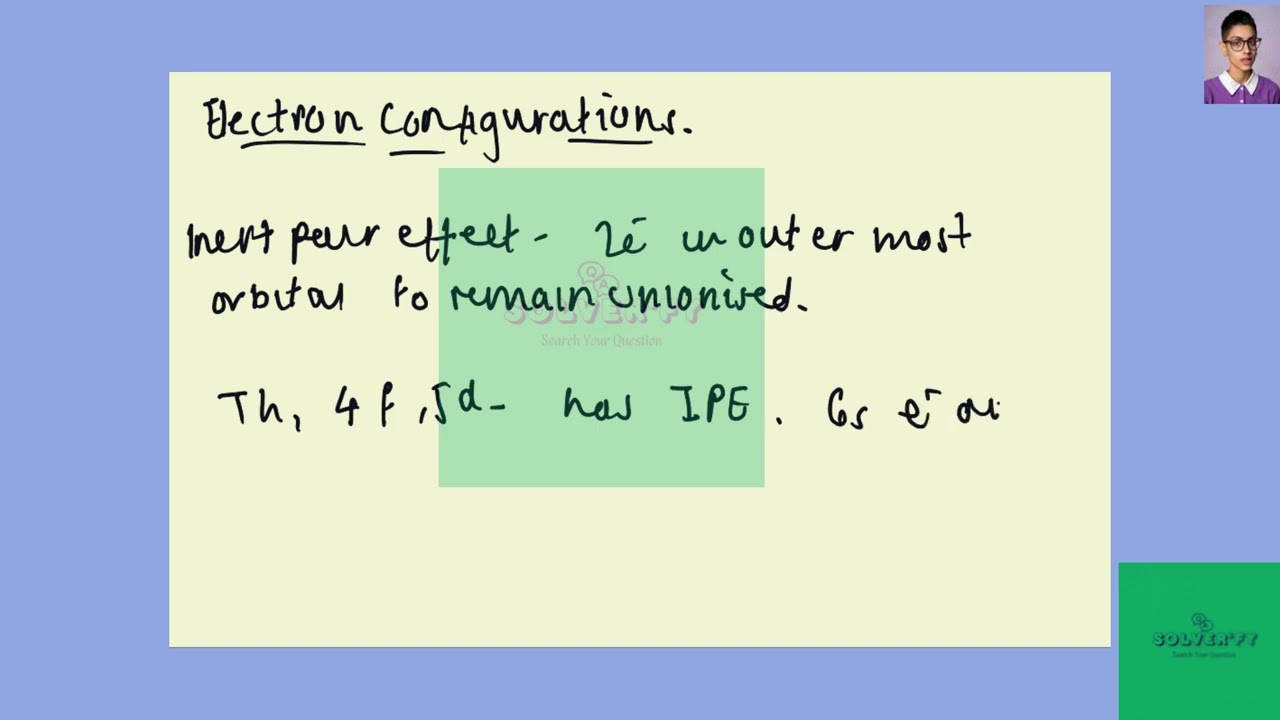 Electron Configurations.
Inert pair effect - 2e⁻ in outer most
orbital to remain unionised.
SOLVER'FY
Search Your Question
Th, 4f, 5d - has IPE. 6s e⁻
SOLVER'FY
Search Your Question